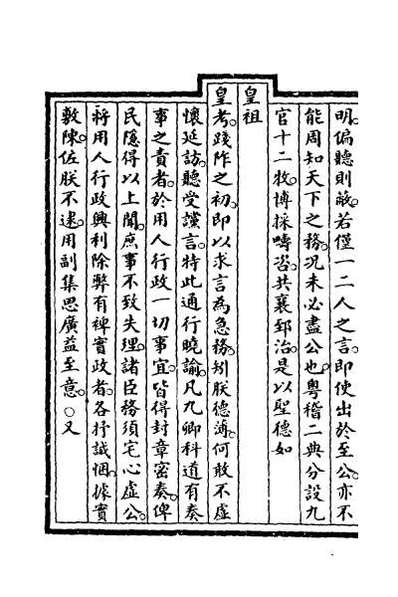 明。偏聽則蔽。若僅一二人之言。即使出於至公。亦不
能周知天下之務。況未必盡公也。粵稽二典分設九
官十二牧。博採疇咨。共襄郅治。是以聖德如
皇祖
皇考。踐阼之初。即以求言為急務。矧朕德薄。何敢不虛
懷延訪。聽受讜言。特此通行曉諭。凡九卿科道有奏
事之責者。於用人行政一切事宜。皆得封章密奏。俾
民隱得以上聞。庶事不致失理。諸臣務須宅心虛公。
將用人行政興利除弊有裨實政者。各抒誠悃。據實
敷陳。佐朕不逮。用副集思廣益至意。○又